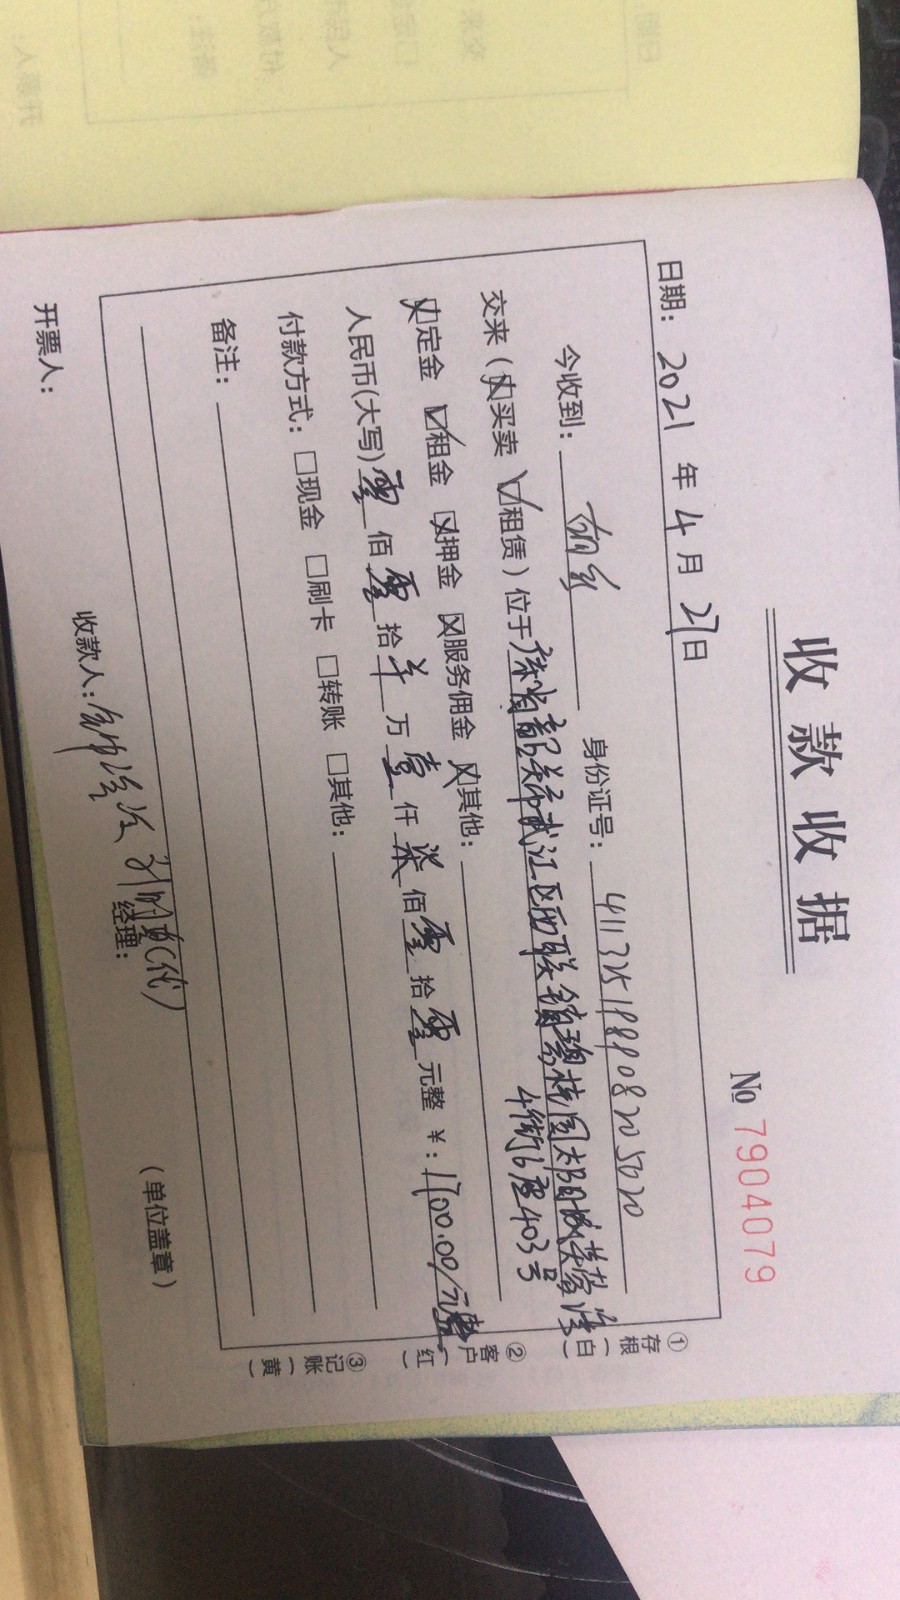 收款收据
№ 7904079
日期：2021年4月27日
今收到： 身份证号：411325198908205020
交来（☒买卖 ☑租赁）位于 韶关市武江区西联镇碧桂园太阳城
4街6座403号
☒定金 ☑租金 ☒押金 ☒服务佣金 ☒其他：
人民币(大写)零佰零拾 万壹仟柒佰零拾零元整 ￥：1700.00/元整
付款方式：□现金 □刷卡 □转账 □其他：
备注：
开票人： 收款人： 经理： （单位盖章）
①存根（白）
②客户（红）
③记账（黄）